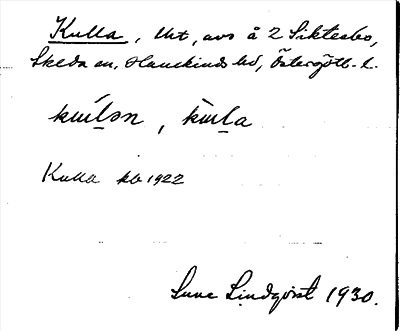 Kulla, tht, avs å 2 Siktesbo,
Skeda sn, Hanekinds hd, Östergötl. l.
Kulla kb 1922
Sune Lindqvist 1930.